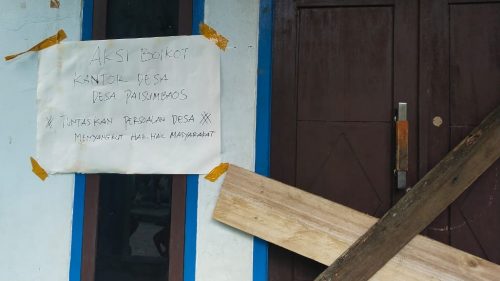 AKSI BOIKOT
KANTOR DESA
DESA PAISUMBAOS
* TUNTASKAN PERSOALAN DESA *
MENYANGKUT HAK-HAK MASYARAKAT